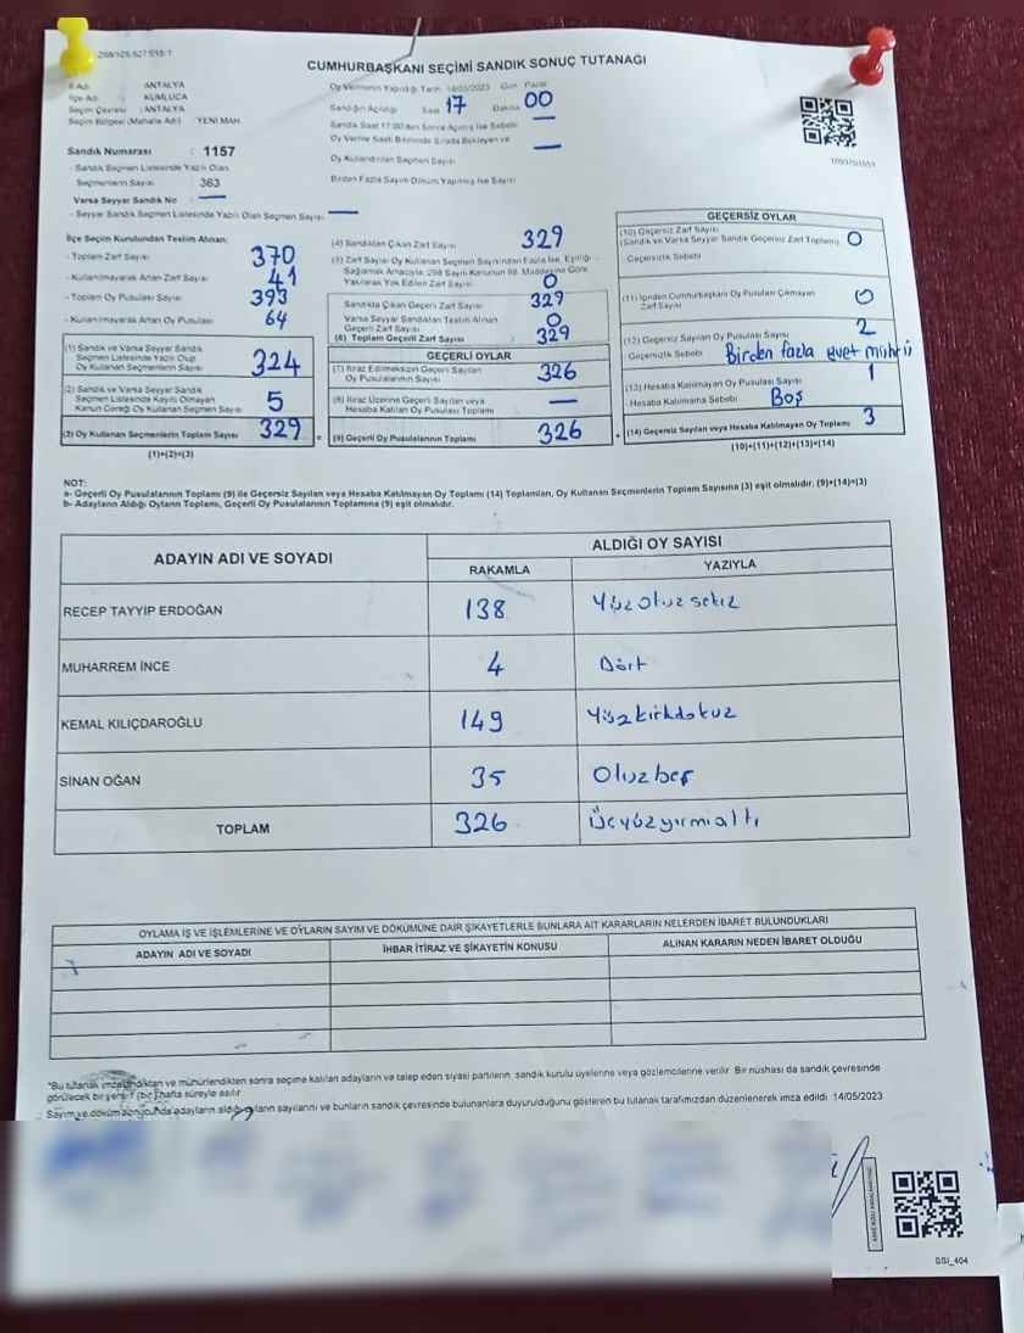 CUMHURBAŞKANI SEÇİMİ SANDIK SONUÇ TUTANAĞI
İl Adı : ANTALYA
İlçe Adı : KUMLUCA
Seçim Çevresi : ANTALYA
Seçim Bölgesi (Mahalle Adı) : YENİ MAH.
Sandık Numarası : 1157
- Sandık Seçmen Listesinde Yazılı Olan
Seçmenlerin Sayısı 363
Varsa Seyyar Sandık No : —
- Seyyar Sandık Seçmen Listesinde Yazılı Olan Seçmen Sayısı —
Oy Vermenin Yapıldığı Tarih: 14/05/2023 Gün: Pazar
Sandığın Açıldığı Saat 17 Dakika 00
Sandık Saat 17:00'den Sonra Açılmış İse Sebebi —
Oy Verme Saati Bitiminde Sırada Bekleyen ve
Oy Kullandırılan Seçmen Sayısı —
Birden Fazla Sayım Döküm Yapılmış İse Sayısı
İlçe Seçim Kurulundan Teslim Alınan:
- Toplam Zarf Sayısı 370
- Kullanılmayarak Artan Zarf Sayısı 41
- Toplam Oy Pusulası Sayısı 393
- Kullanılmayarak Artan Oy Pusulası 64
(1) Sandık ve Varsa Seyyar Sandık
Seçmen Listesinde Yazılı Olup
Oy Kullanan Seçmenlerin Sayısı 324
(2) Sandık ve Varsa Seyyar Sandık
Seçmen Listesinde Kayıtlı Olmayan
Kanun Gereği Oy Kullanan Seçmen Sayısı 5
(3) Oy Kullanan Seçmenlerin Toplam Sayısı 329
(1)+(2)=(3)
(4) Sandıktan Çıkan Zarf Sayısı 329
(5) Zarf Sayısı Oy Kullanan Seçmen Sayısından Fazla İse, Eşitliği
Sağlamak Amacıyla, 298 Sayılı Kanunun 98. Maddesine Göre
Yakılarak Yok Edilen Zarf Sayısı 0
Sandıkta Çıkan Geçerli Zarf Sayısı 329
Varsa Seyyar Sandıktan Teslim Alınan
Geçerli Zarf Sayısı 0
(6) Toplam Geçerli Zarf Sayısı 329
GEÇERLİ OYLAR
(7) İtiraz Edilmeksizin Geçerli Sayılan
Oy Pusulalarının Sayısı 326
(8) İtiraz Üzerine Geçerli Sayılan veya
Hesaba Katılan Oy Pusulası Toplamı —
(9) Geçerli Oy Pusulalarının Toplamı 326
GEÇERSİZ OYLAR
(10) Geçersiz Zarf Sayısı
(Sandık ve Varsa Seyyar Sandık Geçersiz Zarf Toplamı) 0
Geçersizlik Sebebi
(11) İçinden Cumhurbaşkanı Oy Pusulası Çıkmayan
Zarf Sayısı 0
(12) Geçersiz Sayılan Oy Pusulası Sayısı 2
Geçersizlik Sebebi Birden fazla evet mührü
(13) Hesaba Katılmayan Oy Pusulası Sayısı 1
Hesaba Katılmama Sebebi Boş
(14) Geçersiz Sayılan veya Hesaba Katılmayan Oy Toplamı 3
(10)+(11)+(12)+(13)=(14)
NOT:
a- Geçerli Oy Pusulalarının Toplamı (9) ile Geçersiz Sayılan veya Hesaba Katılmayan Oy Toplamı (14) Toplamları, Oy Kullanan Seçmenlerin Toplam Sayısına (3) eşit olmalıdır. (9)+(14)=(3)
b- Adayların Aldığı Oyların Toplamı, Geçerli Oy Pusulalarının Toplamına (9) eşit olmalıdır.
ADAYIN ADI VE SOYADI ALDIĞI OY SAYISI
RAKAMLA YAZIYLA
RECEP TAYYİP ERDOĞAN 138 Yüzotuzsekiz
MUHARREM İNCE 4 Dört
KEMAL KILIÇDAROĞLU 149 Yüzkırkdokuz
SİNAN OĞAN 35 Otuzbeş
TOPLAM 326 Üçyüzyirmialtı
OYLAMA İŞ VE İŞLEMLERİNE VE OYLARIN SAYIM VE DÖKÜMÜNE DAİR ŞİKAYETLERLE BUNLARA AİT KARARLARIN NELERDEN İBARET BULUNDUKLARI
ADAYIN ADI VE SOYADI İHBAR İTİRAZ VE ŞİKAYETİN KONUSU ALINAN KARARIN NEDEN İBARET OLDUĞU
*Bu tutanak imzalandıktan ve mühürlendikten sonra seçime katılan adayların ve talep eden siyasi partilerin, sandık kurulu üyelerine veya gözlemcilerine verilir. Bir nüshası da sandık çevresinde
görülecek bir yere 1 (bir) hafta süreyle asılır.
Sayım ve döküm sonucunda adayların aldığı oyların sayılarını ve bunların sandık çevresinde bulunanlara duyurulduğunu gösteren bu tutanak tarafımızdan düzenlenerek imza edildi. 14/05/2023